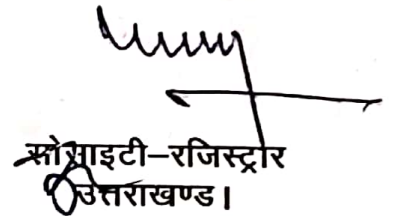 सोसाइटी–रजिस्ट्रार
उत्तराखण्ड।